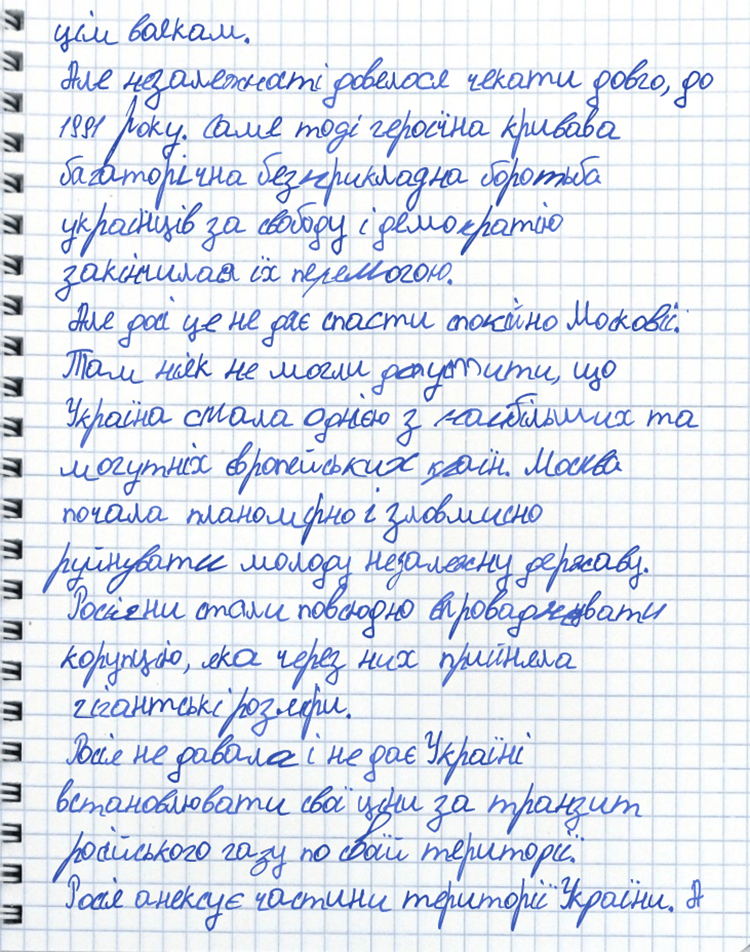 цім вовкам.
Але незалежності довелося чекати довго, до
1991 року. Саме тоді героїчна кривава
багаторічна безприкладна боротьба
українців за свободу і демократію
закінчилася їх перемогою.
Але досі це не дає спасти спокійно Московії.
Там ніяк не могли допустити, що
Україна стала однією з найбільших та
могутніх європейських країн. Москва
почала планомірно і зловмисно
руйнувати молоду незалежну державу.
Росіяни стали повсюдно впроваджувати
корупцію, яка через них прийняла
гігантські розміри.
Росія не давала і не дає Україні
встановлювати свої ціни за транзит
російського газу по своїй території.
Росія анексує частини території України. А